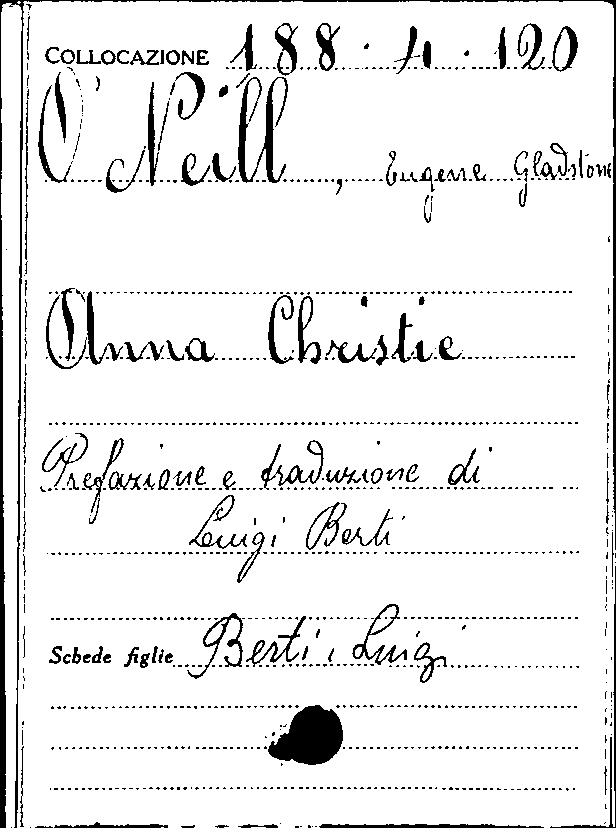 COLLOCAZIONE 188.4.120
O'Neill, Eugene Gladstone
Anna Christie
Prefazione e traduzione di
Luigi Berti
Schede figlie Berti, Luigi